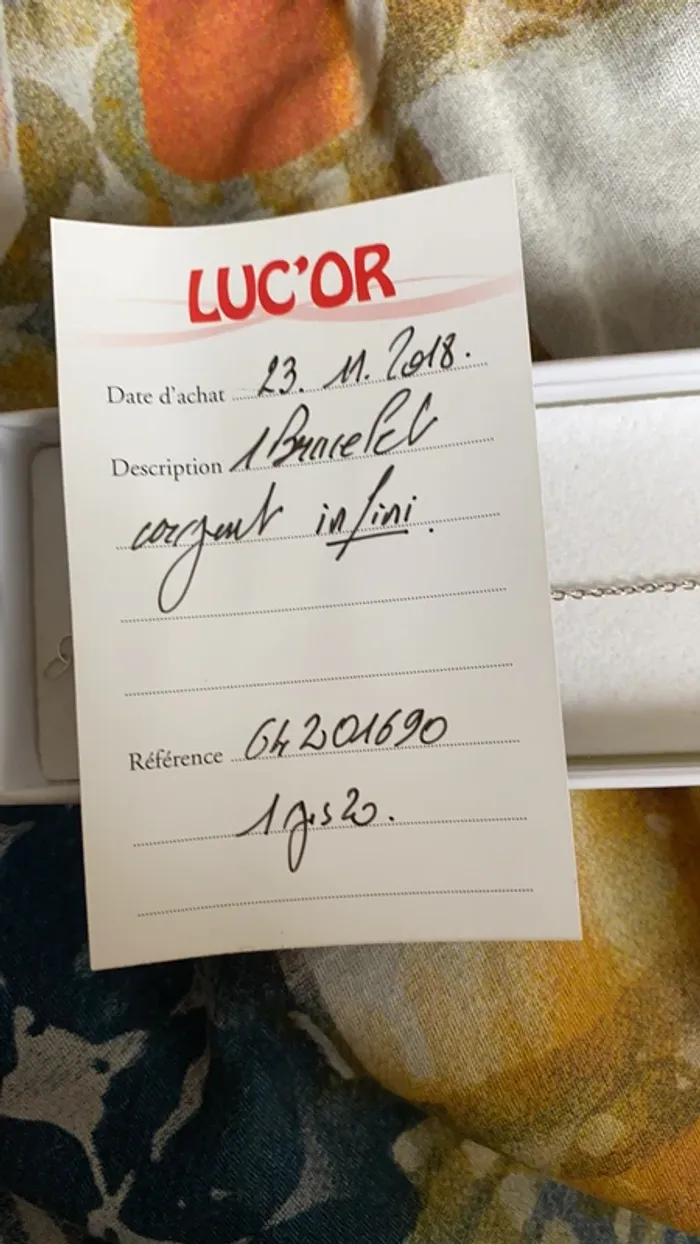 LUC'OR
Date d'achat 23. 11. 2018.
Description 1 Bracelet
argent infini.
Référence 64201690
1 grs 20.